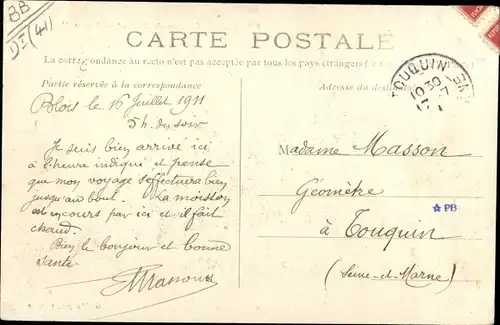 8B
Dt (41)
CARTE POSTALE
La correspondance au recto n'est pas acceptée par tous les pays étrangers
Partie réservée à la correspondance
Adresse du
TOUQUIN
10 30
17 -7
Blois le 16 Juillet 1911
5h. du soir
Je suis bien arrivé ici
à l'heure indiqué et pense
que mon voyage s'effectuera bien
jusqu'au bout. La moisson
est en cours par ici et il fait
chaud.
Bien le bonjour et bonne
santé
Masson
Madame Masson
Géomètre
à Touquin
(Seine-et-Marne)
PB